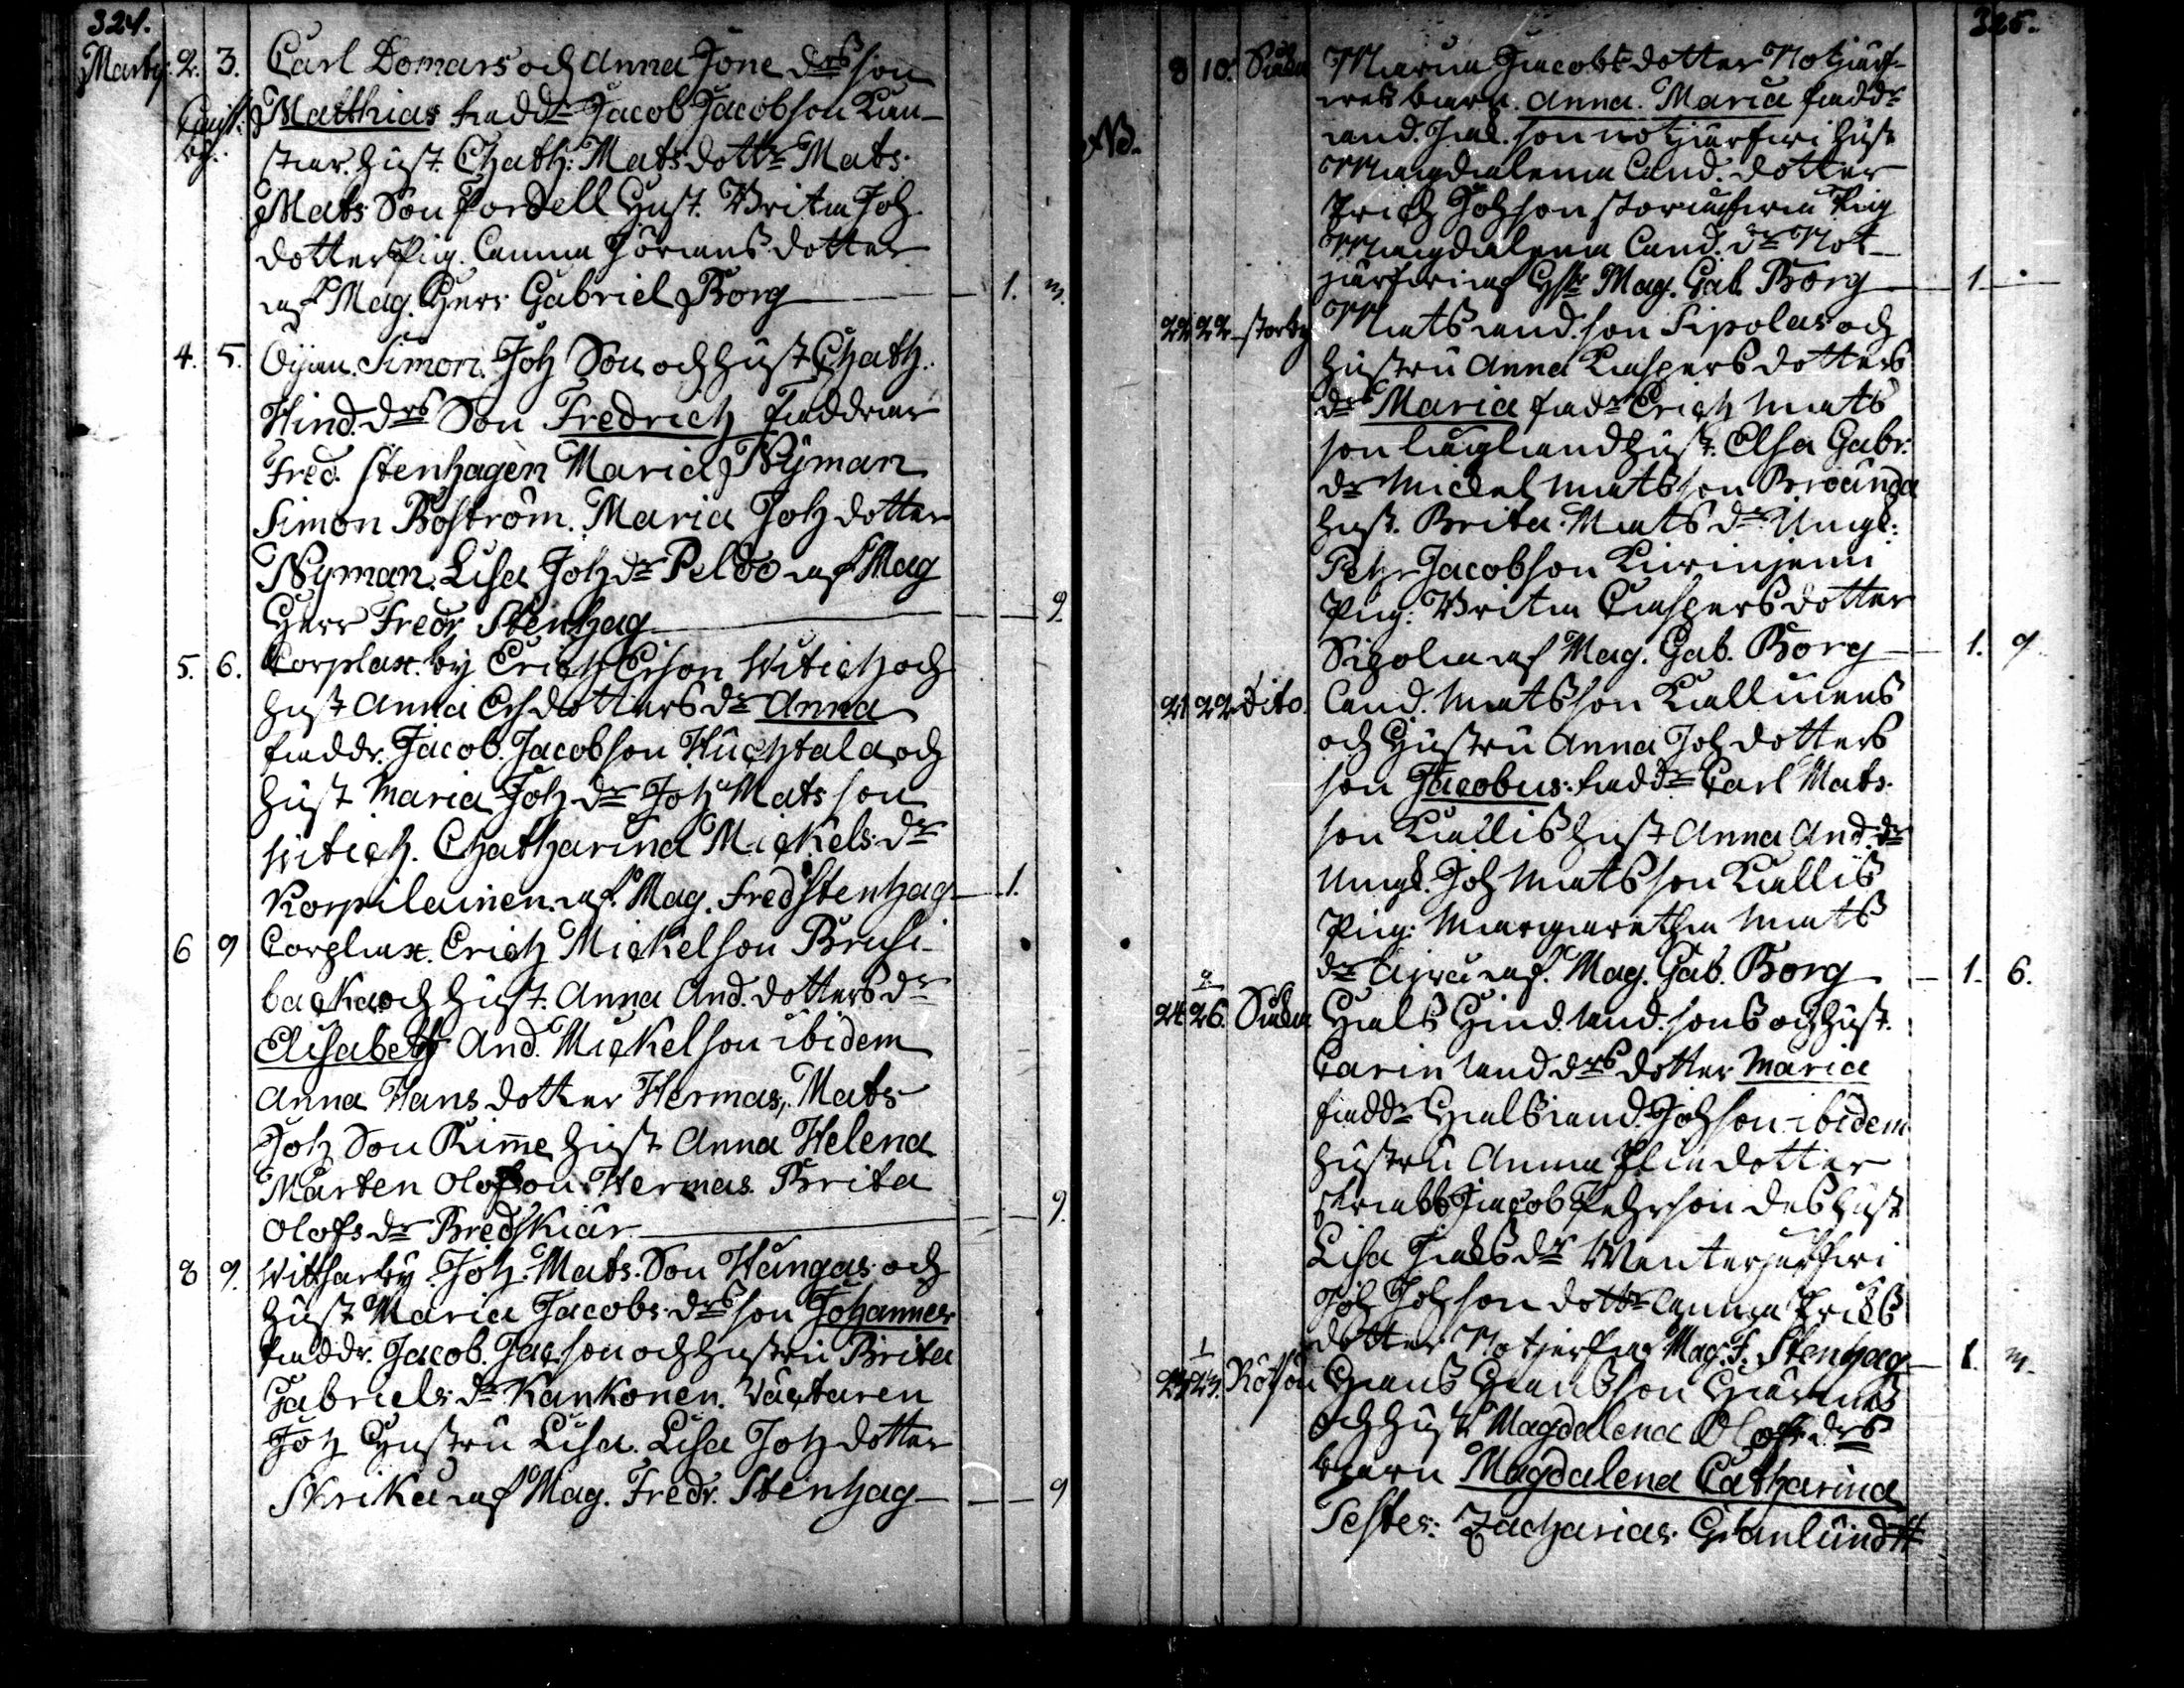 324.
Marty 2. 3. Carl Domars och Anna Jone drs son
Matthias fadd: Jacob Jacobson
hust. Chath: Mats dottr Mats
Mats Son Pordell Hust. Brita Joh
dotter Pig. Anna Görans dotter
af Mag. Herr Gabriel Borg — 1. m.
4. 5. Öijan. Simon Joh Son och hust Chath.
Hind. drs Son Fredrich faddrar
Fred. Stenhagen Maria Nyman
Simon Boström. Maria Joh dotter
Nyman. Lisa Joh dr Peldo af Mag
Herr Fredr Stenhag — 9.
5. 6. Corplax. by Erich Erson Witich och
hust Anna Er dotters dr Anna
faddr. Jacob. Jacobson Huchtala och
hust Maria Joh dr Joh Mats son
Witich. Chatharina Mickels dr
Korpilainen. af. Mag. Fred Stenhag — 1.
6 9 Corplax. Erich Mickelson Brusi-
backa och hust. Anna And. dotters dr
Elisabeth And. Mickelson ibidem
Anna Hans dotter Hermas, Mats
Joh Son Rimme hust Anna Helena
Mårten Olofson Hermas. Brita
Olofs dr Bredskiär — 9.
8 9. Wittsarby. Joh. Mats. Son Hangas och
hust Maria Jacobs drs son Johannes
faddr. Jacob. Jac. son och hustru Brita
Gabriels dr Kankonen. Vachtaren
Joh Hustru Lisa. Lisa Joh dotter
Skrika af Mag. Fredr. Stenhag — 9
325.
8 10. Maria Jacobs dotter
barn. Anna. Maria faddr
And. son hust
NB. Magdalena And. dotter
Erich Joh son Pig
Magdalena And. dr Not-
Mag. Gab. Borg — 1
22 22 storby Mats And. son Sipolas och
hustru Anna Kaspers dotters
dr Maria fadr Erich Mats
son hust. Elsa Gabr.
dr Mickel Mats son
hust. Brita. Mats dr Ungk:
Pehr Jacobson
Pig: Brita Caspers dotter
Sipola af Mag. Gab. Borg — 1. 9.
21 22 Dito. And. Mats son
och Hustru Anna Joh dotters
son Jacobus. fadd: Carl Mats.
son Kallis hust Anna And: dr
Ungk. Joh Mats son Kallis
Pig: Margaretha Mats
dr af. Mag. Gab. Borg — 1. 6.
24. 26. Hind. And. sons och hust.
Carin And drs dotter Maria
fadd: And. Joh son ibidem
hustru Anna dotter
Jacob Pehrson des hust
Lisa dr
Joh Joh son dottr Anna Erichs
dotter Mag. F. Stenhag — 1. m.
Hans Hans son
och hust: Magdalena Olofs drs
barn Magdalena Catharina
Testes: Zacharias Granlund #